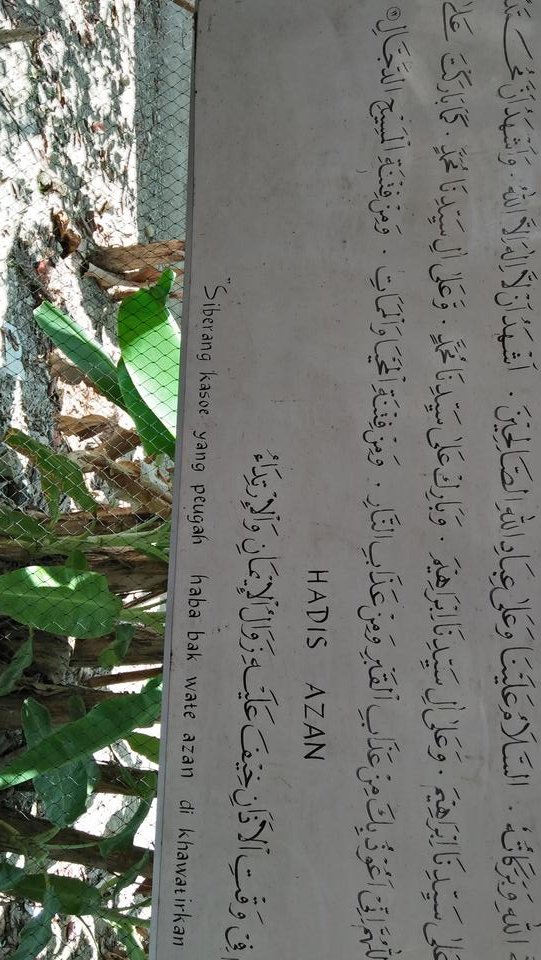 اللهِ وَبَرَكَاتُهُ . السَّلَامُ عَلَيْنَا وَعَلَى عِبَادِ اللهِ الصَّالِحِيْنَ . اَشْهَدُ اَنْ لَا اِلٰهَ اِلَّا اللهُ . وَاَشْهَدُ اَنَّ
عَلَى سَيِّدِنَا اِبْرَاهِيْمَ . وَعَلَى اٰلِ سَيِّدِنَا اِبْرَاهِيْمَ . وَبَارِكْ عَلَى سَيِّدِنَا مُحَمَّدٍ . وَعَلَى اٰلِ سَيِّدِنَا مُحَمَّدٍ . كَمَا بَارَكْتَ عَلَى
اَللّٰهُمَّ اِنِّيْ اَعُوْذُ بِكَ مِنْ عَذَابِ الْقَبْرِ وَمِنْ عَذَابِ النَّارِ . وَمِنْ فِتْنَةِ الْمَحْيَا وَالْمَمَاتِ . وَمِنْ فِتْنَةِ الْمَسِيْحِ الدَّجَّالِ
HADIS AZAN
فِيْ وَقْتِ الْاَذَانِ خِيْفَ عَلَيْهِ زَوَالُ الْاِيْمَانِ وَالْاِرْتِدَاءُ
"Siberang kasoe yang peugah haba bak wate azan di khawatirkan